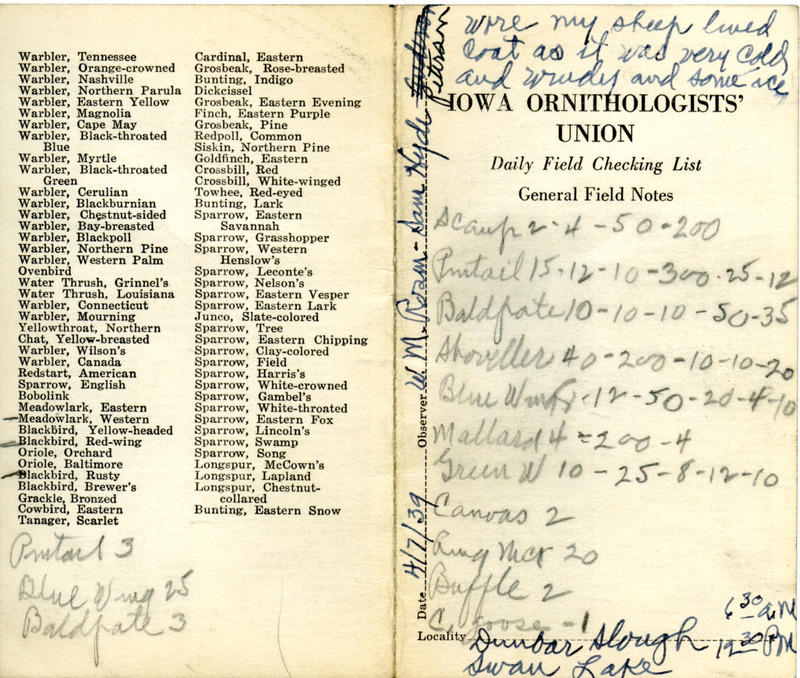 Warbler, Tennessee
Warbler, Orange-crowned
Warbler, Nashville
Warbler, Northern Parula
Warbler, Eastern Yellow
Warbler, Magnolia
Warbler, Cape May
Warbler, Black-throated
Blue
Warbler, Myrtle
Warbler, Black-throated
Green
Warbler, Cerulian
Warbler, Blackburnian
Warbler, Chestnut-sided
Warbler, Bay-breasted
Warbler, Blackpoll
Warbler, Northern Pine
Warbler, Western Palm
Ovenbird
Water Thrush, Grinnel's
Water Thrush, Louisiana
Warbler, Connecticut
Warbler, Mourning
Yellowthroat, Northern
Chat, Yellow-breasted
Warbler, Wilson's
Warbler, Canada
Redstart, American
Sparrow, English
Bobolink
Meadowlark, Eastern
Meadowlark, Western
Blackbird, Yellow-headed
Blackbird, Red-wing
Oriole, Orchard
Oriole, Baltimore
Blackbird, Rusty
Blackbird, Brewer's
Grackle, Bronzed
Cowbird, Eastern
Tanager, Scarlet
Pintail 3
Blue Wing 25
Baldpate 3
Cardinal, Eastern
Grosbeak, Rose-breasted
Bunting, Indigo
Dickcissel
Grosbeak, Eastern Evening
Finch, Eastern Purple
Grosbeak, Pine
Redpoll, Common
Siskin, Northern Pine
Goldfinch, Eastern
Crossbill, Red
Crossbill, White-winged
Towhee, Red-eyed
Bunting, Lark
Sparrow, Eastern
Savannah
Sparrow, Grasshopper
Sparrow, Western
Henslow's
Sparrow, Leconte's
Sparrow, Nelson's
Sparrow, Eastern Vesper
Sparrow, Eastern Lark
Junco, Slate-colored
Sparrow, Tree
Sparrow, Eastern Chipping
Sparrow, Clay-colored
Sparrow, Field
Sparrow, Harris's
Sparrow, White-crowned
Sparrow, Gambel's
Sparrow, White-throated
Sparrow, Eastern Fox
Sparrow, Lincoln's
Sparrow, Swamp
Sparrow, Song
Longspur, McCown's
Longspur, Lapland
Longspur, Chestnut-
collared
Bunting, Eastern Snow
Date 4/7/39 Observer W. M. Rosen - Sam Hyde
wore my sheep lined
coat as it was very cold
and windy and some ice
IOWA ORNITHOLOGISTS'
UNION
Daily Field Checking List
General Field Notes
Scaup 2-4-50-200
Pintail 15-12-10-300-25-12
Baldpate 10-10-10-50-35
Shoveller 40-200-10-10-20
Blue Wing -12-50-20-4-10
Mallard 4-200-4
Green W 10-25-8-12-10
Canvas 2
Ring Neck 20
Buffle 2
C. goose -1
6 30 a.m
Locality Dunbar Slough 12 30 PM
Swan Lake